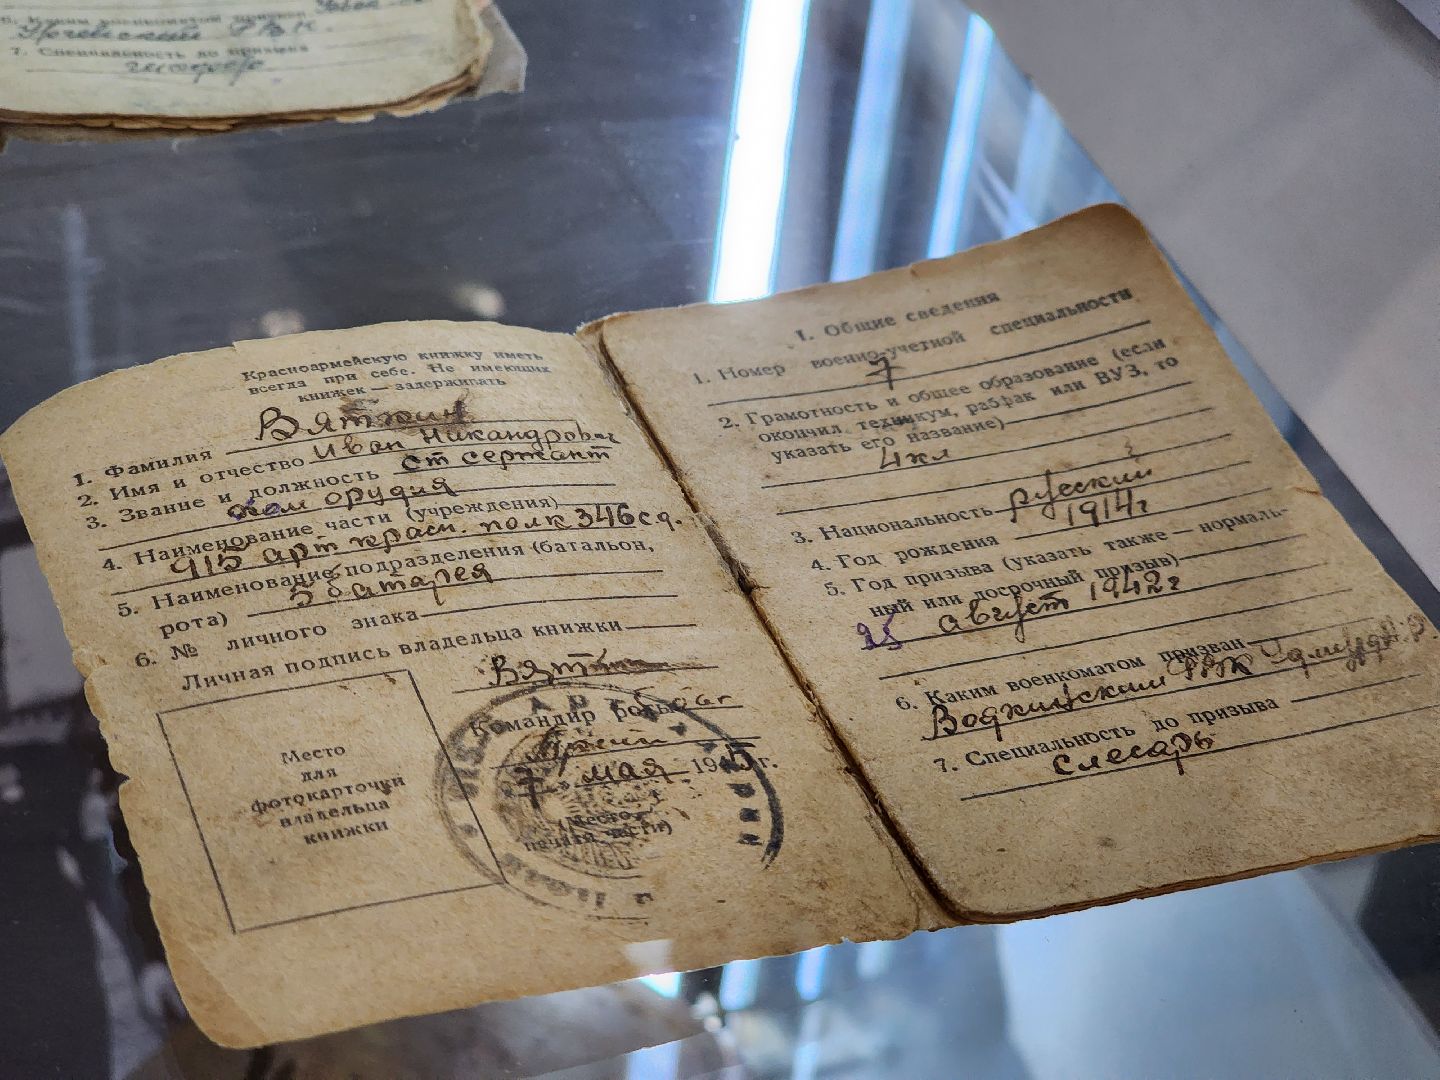 Урževский РВК.
7. Специальность до призыва
Красноармейскую книжку иметь
всегда при себе. Не имеющих
книжек — задерживать
1. Фамилия Вяткин
2. Имя и отчество Иван Никандрович
3. Звание и должность ст сержант
ком орудия
4. Наименование части (учреждения)
915 арт красн. полк 346 с.д.
5. Наименование подразделения (батальон,
рота) 5 батарея
6. № личного знака
Личная подпись владельца книжки
Вяткин
Место
для
фотокарточки
владельца
книжки
Командир роты
7 мая 1945 г.
(Место
печати части)
I. Общие сведения
1. Номер военно-учетной специальности
7
2. Грамотность и общее образование (если
окончил техникум, рабфак или ВУЗ, то
указать его название)
4 кл
3. Национальность русский
4. Год рождения 1914 г
5. Год призыва (указать также — нормаль-
ный или досрочный призыв)
август 1942 г
6. Каким военкоматом призван
РВК
7. Специальность до призыва
слесарь